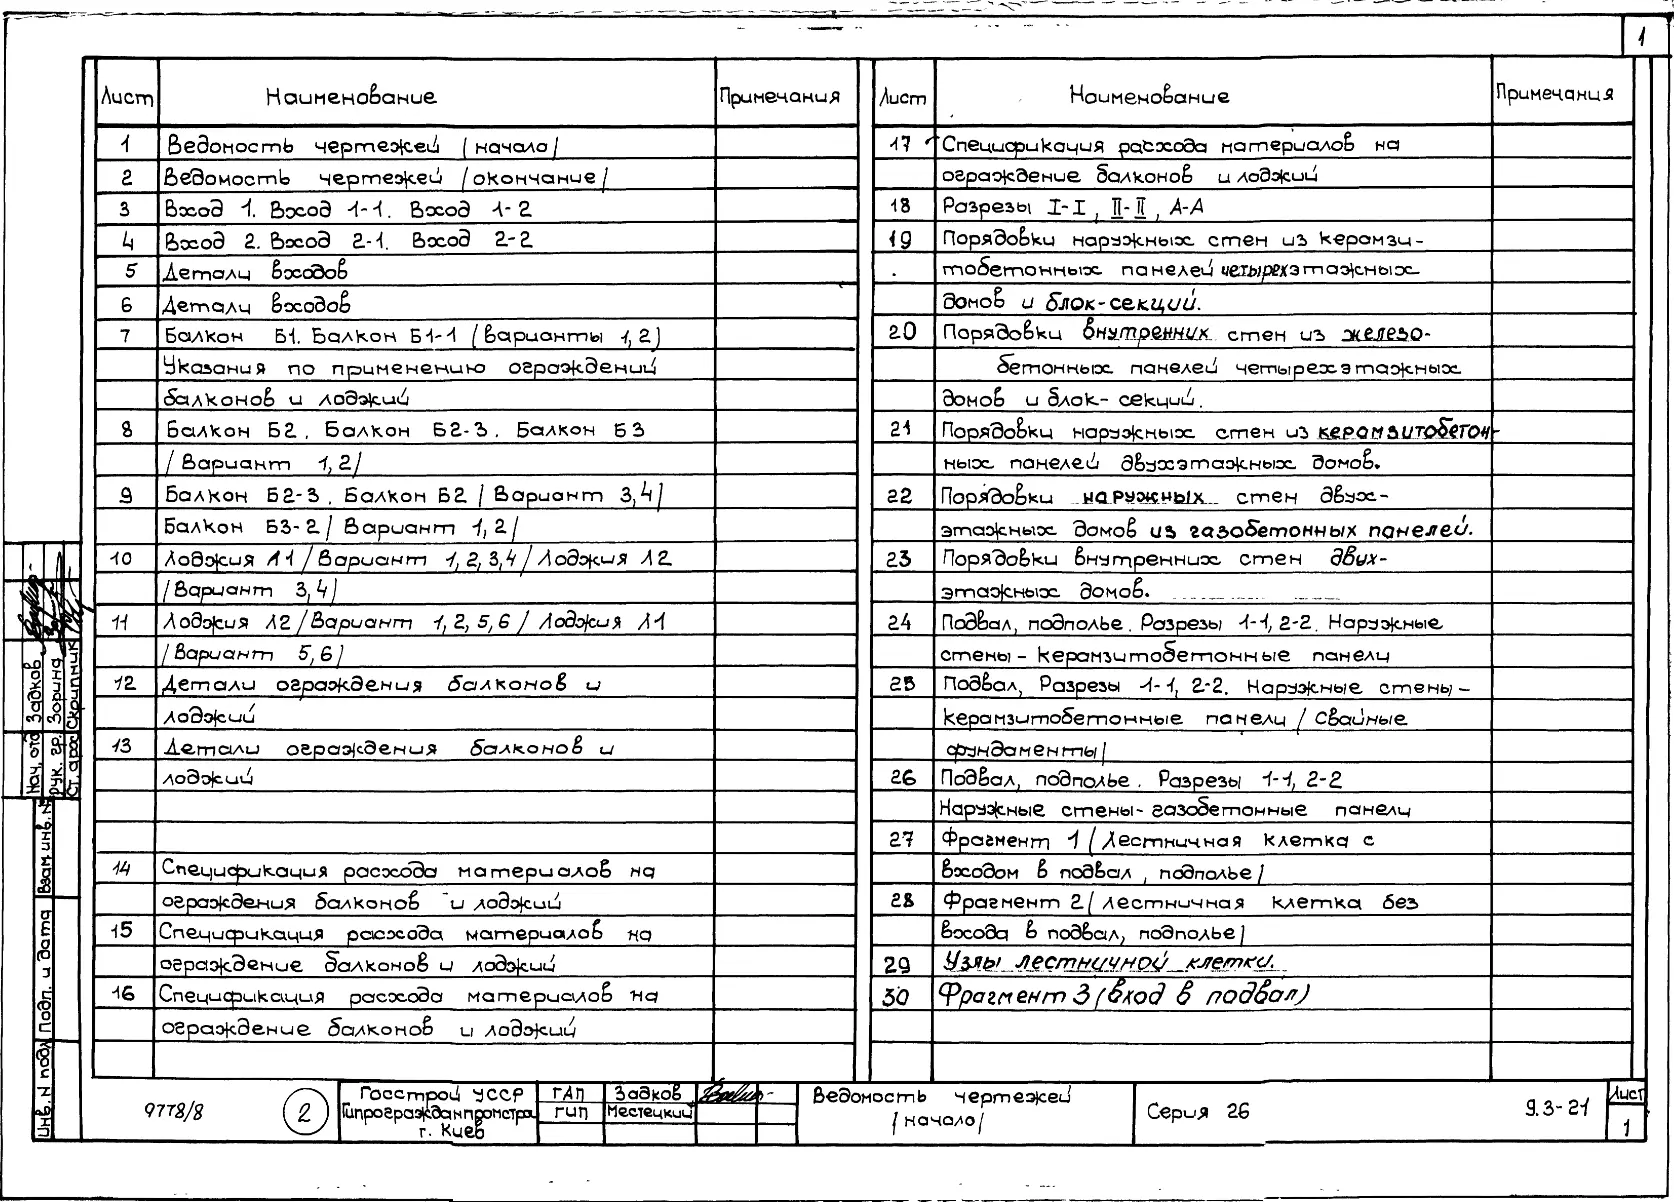 1
Лист Наименование Примечания
1 Ведомость чертежей /начало/
2 Ведомость чертежей /окончание/
3 Вход 1. Вход 1-1. Вход 1-2
4 Вход 2. Вход 2-1. Вход 2-2
5 Детали входов
6 Детали входов
7 Балкон Б1. Балкон Б1-1 (варианты 1,2)
Указания по применению ограждений
балконов и лоджий
8 Балкон Б2. Балкон Б2-3. Балкон Б3
/Вариант 1,2/
9 Балкон Б2-3. Балкон Б2 /Вариант 3,4/
Балкон Б3-2 /Вариант 1,2/
10 Лоджия Л1 /Вариант 1,2,3,4/ Лоджия Л2
/Вариант 3,4/
11 Лоджия Л2 /Вариант 1,2,5,6/ Лоджия Л1
/Вариант 5,6/
12 Детали ограждения балконов и
лоджий
13 Детали ограждения балконов и
лоджий
14 Спецификация расхода материалов на
ограждения балконов и лоджий
15 Спецификация расхода материалов на
ограждение балконов и лоджий
16 Спецификация расхода материалов на
ограждение балконов и лоджий
Лист Наименование Примечания
17 Спецификация расхода материалов на
ограждение балконов и лоджий
18 Разрезы I-I, II-II, А-А
19 Порядовки наружных стен из керамзи-
тобетонных панелей четырехэтажных
домов и блок-секций.
20 Порядовки внутренних стен из железо-
бетонных панелей четырехэтажных
домов и блок-секций.
21 Порядовки наружных стен из керамзитобетон-
ных панелей двухэтажных домов.
22 Порядовки наружных стен двух-
этажных домов из газобетонных панелей.
23 Порядовки внутренних стен двух-
этажных домов.
24 Подвал, подполье. Разрезы 1-1, 2-2. Наружные
стены - керамзитобетонные панели
25 Подвал, Разрезы 1-1, 2-2. Наружные стены -
керамзитобетонные панели /Свайные
фундаменты/
26 Подвал, подполье. Разрезы 1-1, 2-2
Наружные стены - газобетонные панели
27 Фрагмент 1 /Лестничная клетка с
входом в подвал, подполье/
28 Фрагмент 2 /лестничная клетка без
входа в подвал, подполье/
29 Узлы лестничной клетки.
30 Фрагмент 3 (вход в подвал)
Нач. отд Задков
рук. гр. Зорина
Ст. арх Скрипник
Взам. инв. N
Подп. и дата
Инв. N подл
9778/8
2
Госстрой УССР
Гипрогражданпромстрой
г. Киев
ГАП Задков
ГИП Местецкий
Ведомость чертежей
/начало/
Серия 26
9.3-21
Лист
1